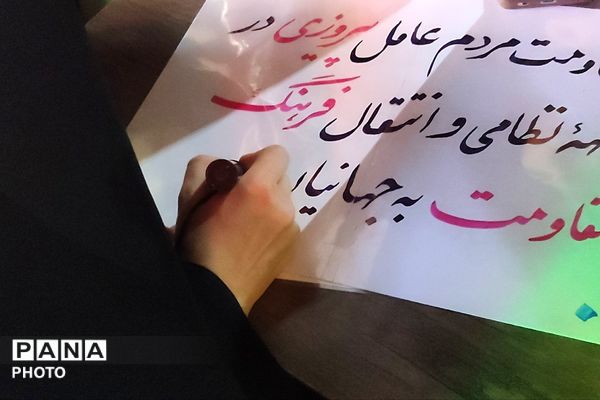 اومت مردم عامل پیروزی در
ههٔ نظامی و انتقال فرهنگ
قاومت به جهانیا
PANA
PHOTO